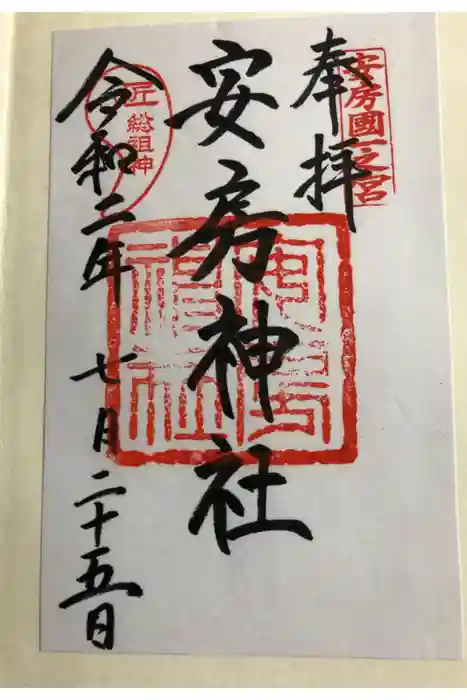 奉拝
安房國一之宮
安房神社
安房神社
匠総祖神
令和二年 七月二十五日